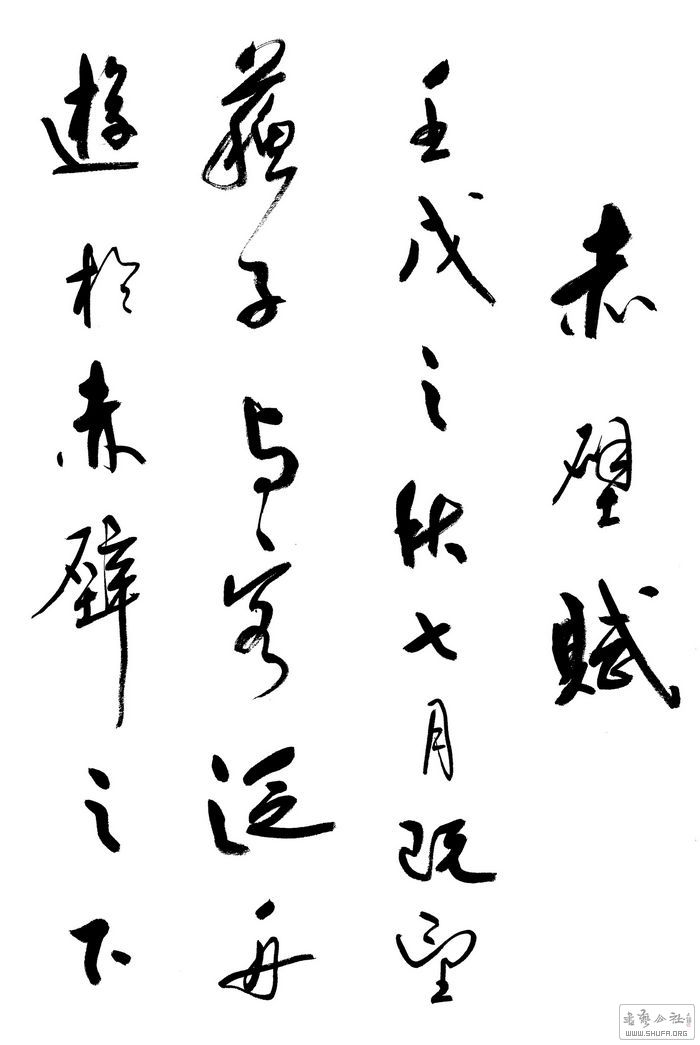 赤壁賦
壬戌之秋七月既望
蘇子与客泛舟
遊於赤壁之下
書藝公社
WWW.SHUFA.ORG